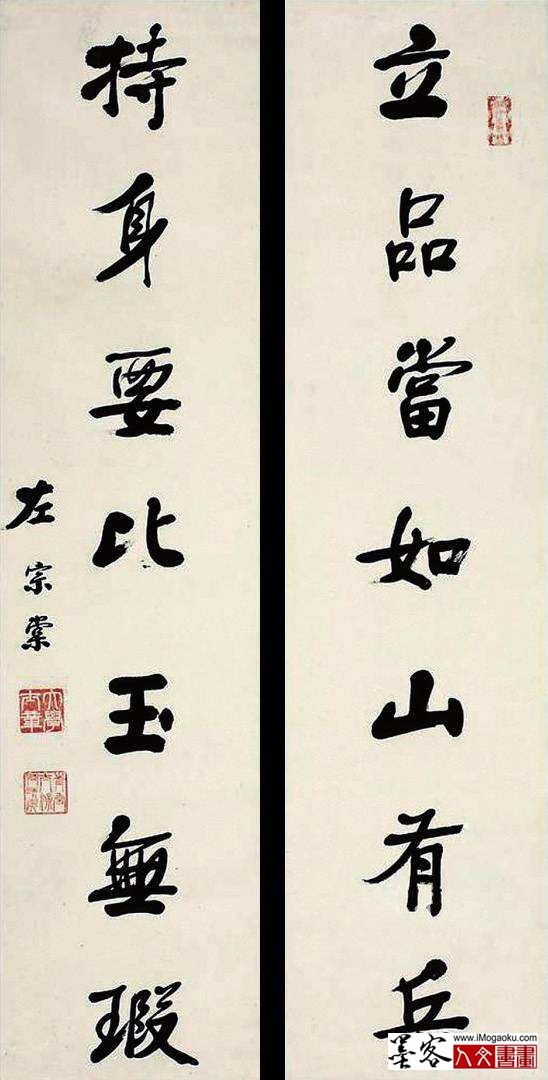 立品當如山有岳
持身要比玉無瑕
左宗棠
墨客
www.iMogaoku.com
人文書畫